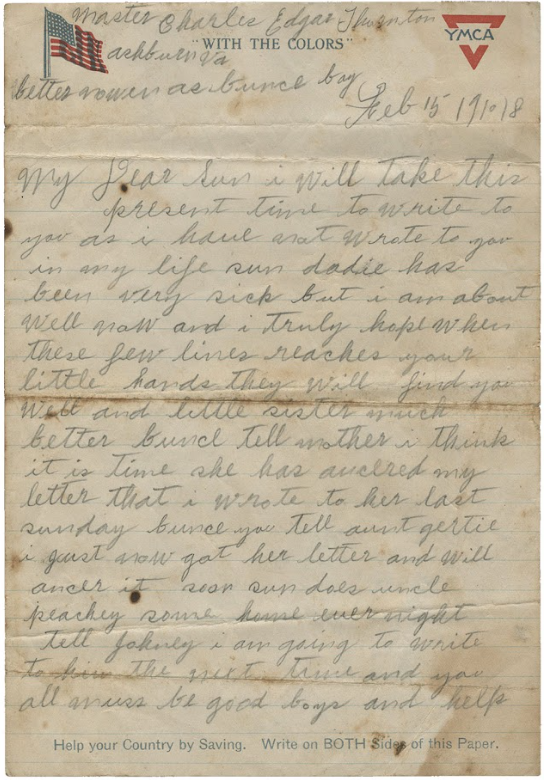 Master Charles Edgar Thornton
YMCA
"WITH THE COLORS"
ashburn Va
better nowen as bunce boy
Feb 15 1918
My Dear Sun i will take this
present time to write to
you as i have not wrote to you
in my life sun dadie has
been very sick but i am about
well now and i truly hope when
these few lines reaches your
little hands they will find you
well and little sister much
better bunce tell mother i think
it is time she has ancered my
letter that i wrote to her last
sunday bunce you tell aunt gertie
i just now got her letter and will
ancer it soon sun does uncle
peachey some home ever night
tell Johney i am going to write
to him the next time and you
all muss be good boys and help
Help your Country by Saving. Write on BOTH Sides of this Paper.